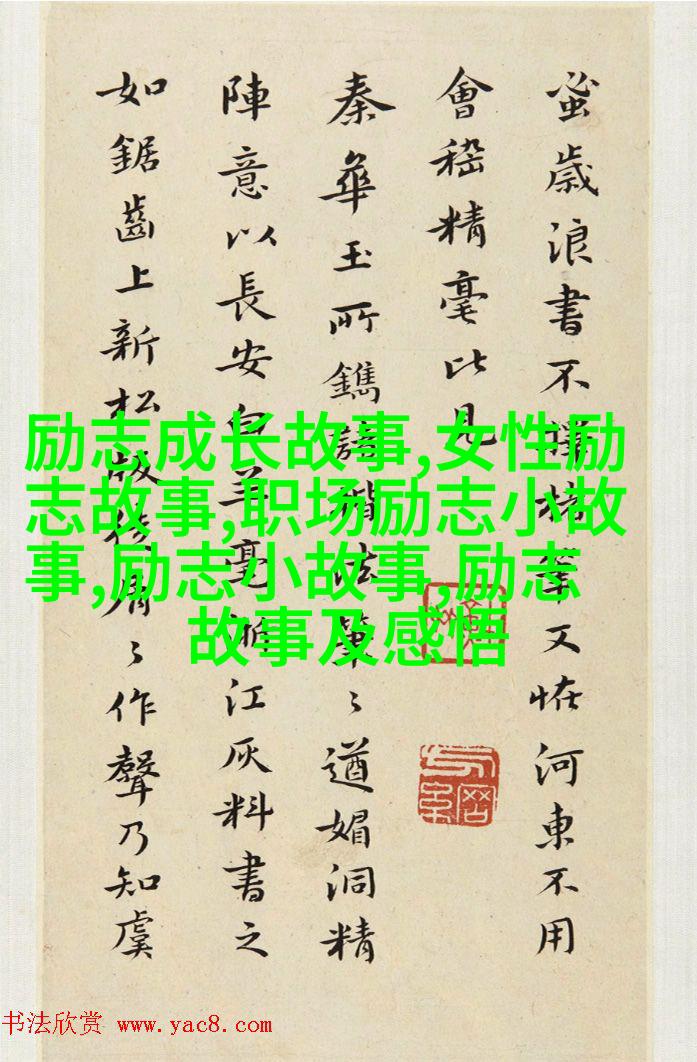 蚤歲浪書不擇楮筆又恠河東不用
會稽精毫比見
秦華玉所鐫諸楷法肇〻遒媚洞精
陳意以長安白羊毫江灰料書之
如鋸齒上新松版後屑〻作聲乃知虞
励志成长故事,女性励
志故事,职场励志小故
事,励志小故事,励志
故事及感悟
书法欣赏 www.yac8.com